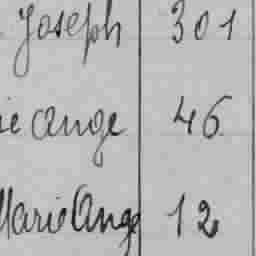 Joseph 301
ie ange 46
Marie Ange 12